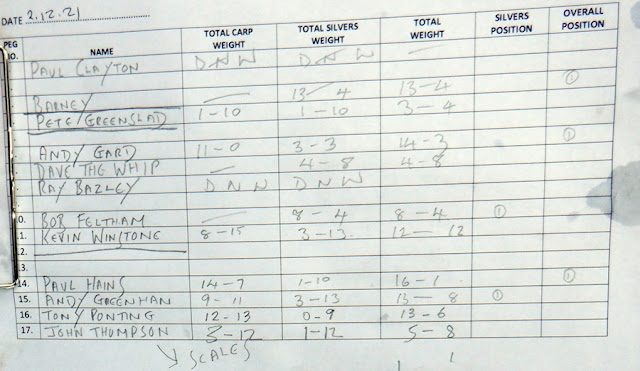 DATE 2.12.21
PEG NO. NAME TOTAL CARP WEIGHT TOTAL SILVERS WEIGHT TOTAL WEIGHT SILVERS POSITION OVERALL POSITION
PAUL CLAYTON D N W D N W —
BARNEY — 13 - 4 13 - 4 ①
PETE GREENSLAD 1 - 10 1 - 10 3 - 4
ANDY GARD 11 - 0 3 - 3 14 - 3 ①
DAVE THE WHIP — 4 - 8 4 - 8
RAY BAZLEY D N W D N W
0. BOB FELTHAM — 8 - 4 8 - 4 ①
1. KEVIN WINSTONE 8 - 15 3 - 13 12 — 12
2.
13.
14. PAUL HAINS 14 - 7 1-10 16 - 1 ①
15. ANDY GREENHAN 9 - 11 3 - 13 13 — 8 ①
16. TONY PONTING 12 - 13 0 - 9 13 - 6
17. JOHN THOMPSON 3 - 12 1-12 5 - 8
SCALES